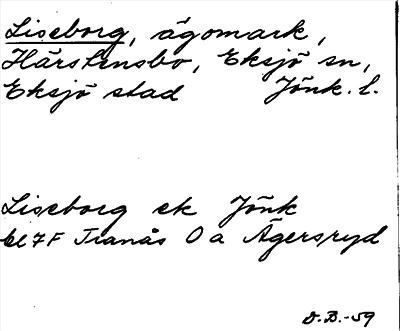 Liseborg, ägomark,
Härstensbo, Eksjö sn,
Eksjö stad Jönk. l.
Liseborg ek Jönk
bl 7F Tranås 0 a Ägersryd
D.B.-59